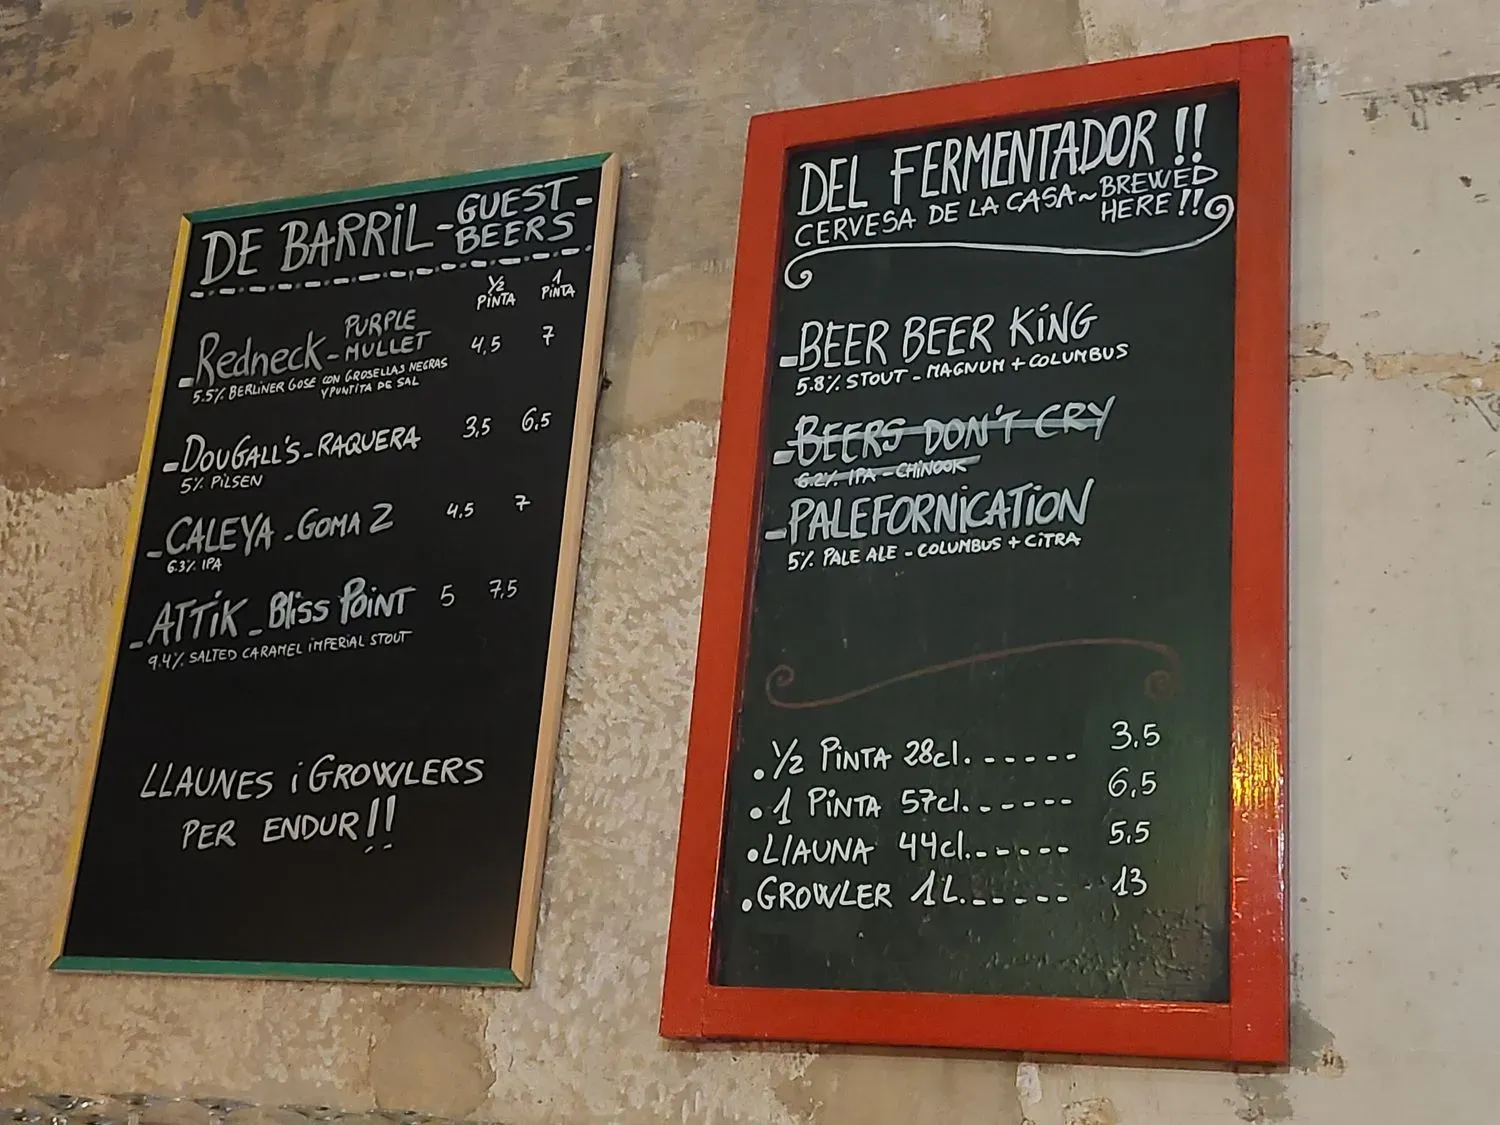 DE BARRIL - GUEST - BEERS
1/2 PINTA 1 PINTA
- Redneck - PURPLE MULLET 4,5 7
5.5% BERLINER GOSE CON GROSELLAS NEGRAS
Y PUNTITA DE SAL
- DOUGALL'S - RAQUERA 3,5 6,5
5% PILSEN
- CALEYA - GOMA 2 4.5 7
6.3% IPA
- ATTIK - Bliss POINT 5 7,5
9.4% SALTED CARAMEL IMPERIAL STOUT
LLAUNES i GROWLERS
PER ENDUR!!
DEL FERMENTADOR!!
CERVESA DE LA CASA ~ BREWED HERE!!
- BEER BEER KING
5.8% STOUT - MAGNUM + COLUMBUS
- BEERS DON'T CRY
6.2% IPA - CHINOOK
- PALEFORNICATION
5% PALE ALE - COLUMBUS + CITRA
• 1/2 PINTA 28cl. ------ 3.5
• 1 PINTA 57cl. ------ 6,5
• LLAUNA 44cl. ------ 5,5
• GROWLER 1L. ------ 13